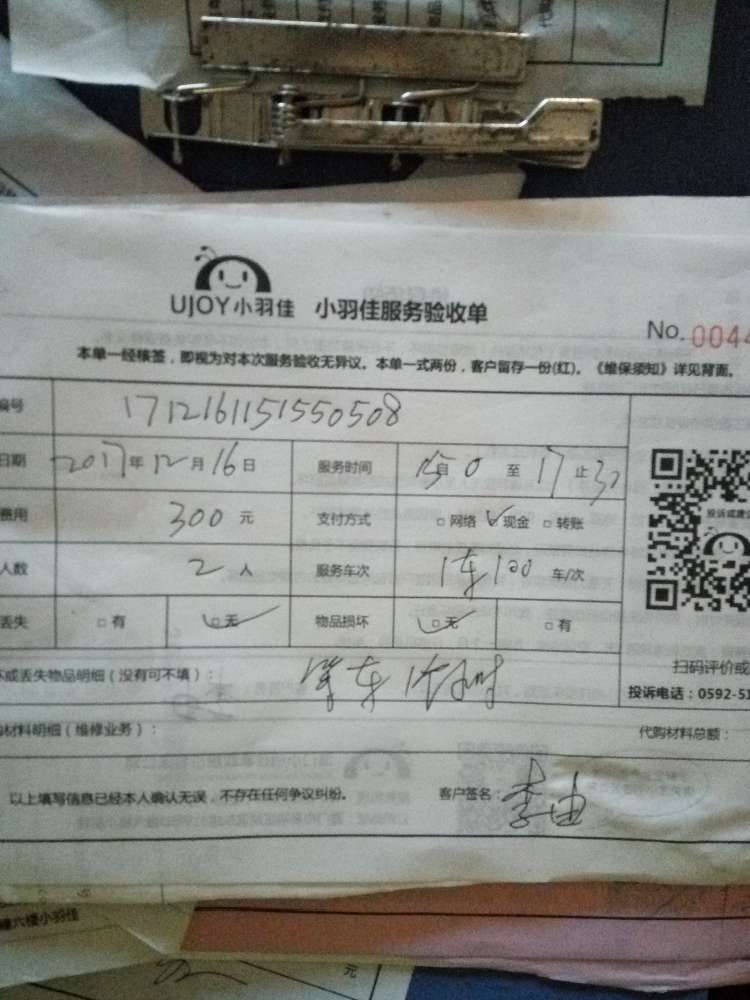 UJOY小羽佳 小羽佳服务验收单
No.0044
本单一经核签，即视为对本次服务验收无异议。本单一式两份，客户留存一份(红)。《维保须知》详见背面。
编号 1712161151550508
日期 2017年12月16日 服务时间 15自0至17止30
费用 300元 支付方式 □网络 ✓现金 □转账
人数 2人 服务车次 1车100车/次
丢失 □有 □无 物品损坏 □无 □有
投诉或建议
坏或丢失物品明细（没有可不填）： 等车1小时
扫码评价或
投诉电话：0592-51
购材料明细（维修业务）： 代购材料总额：
以上填写信息已经本人确认无误，不存在任何争议纠纷。 客户签名：李由
楼六楼小羽佳
元